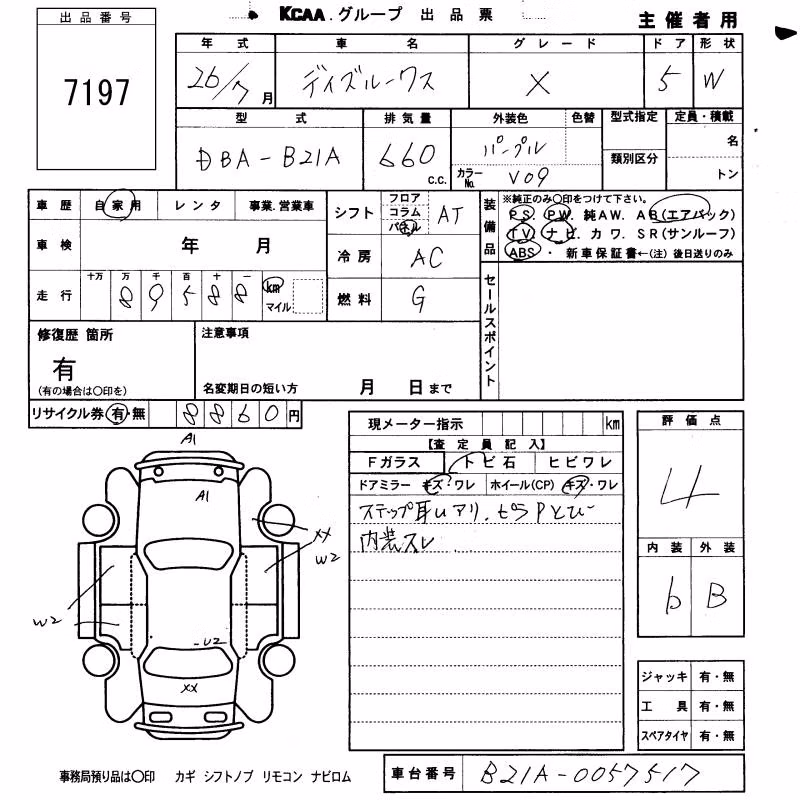 出品番号
7197
KCAA.グループ 出品票
主催者用
年式 車名 グレード ドア 形状
26/7月 デイズルークス X 5 W
型式 排気量 外装色 色替 型式指定 定員・積載
DBA-B21A 660 C.C. パープル 類別区分 名
カラーNo. V09 トン
車歴 自家用 レンタ 事業.営業車
車検 年 月
走行 十万 万 千 百 十 一
8 9 5 8 8 km マイル
シフト フロア コラム パネル AT
冷房 AC
燃料 G
装備品 ※純正のみ〇印をつけて下さい。
PS. PW. 純AW. AB(エアバック)
TV. ナビ. カワ. SR(サンルーフ)
ABS ・ 新車保証書←(注) 後日送りのみ
セールスポイント
修復歴 箇所
有
(有の場合は〇印を)
注意事項
名変期日の短い方 月 日まで
リサイクル券 有・無 8 8 6 0 円
現メーター指示 km
【査定員記入】
Fガラス トビ石 ヒビワレ
ドアミラー キズ・ワレ ホイール(CP) キズ・ワレ
内装スレ
評価点
4
内装 外装
6 B
ジャッキ 有・無
工具 有・無
スペアタイヤ 有・無
A1
A1
XX
W2
W2
U2
XX
事務局預り品は〇印 カギ シフトノブ リモコン ナビロム
車台番号 B21A-0057517